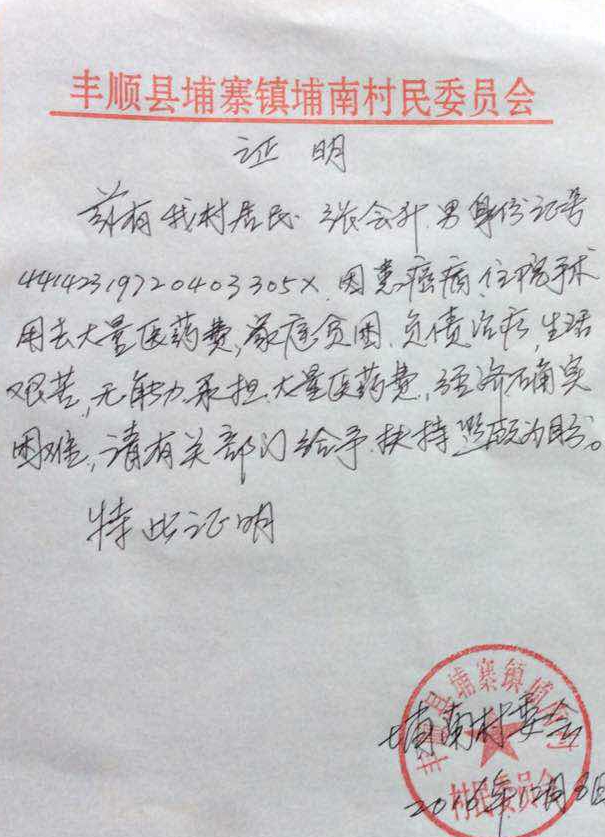 丰顺县埔寨镇埔南村民委员会
证 明
兹有我村居民 张会升,男身份证号
44142319720403305X.因患癌病,住院手术
用去大量医药费,家庭贫困.负债治疗,生活
艰苦,无能力承担.大量医药费,经济确实
困难,请有关部门给予.扶持 为盼。
特此证明
丰顺县埔寨镇埔南村
埔南村委会
村民委员会
2016年12月6日